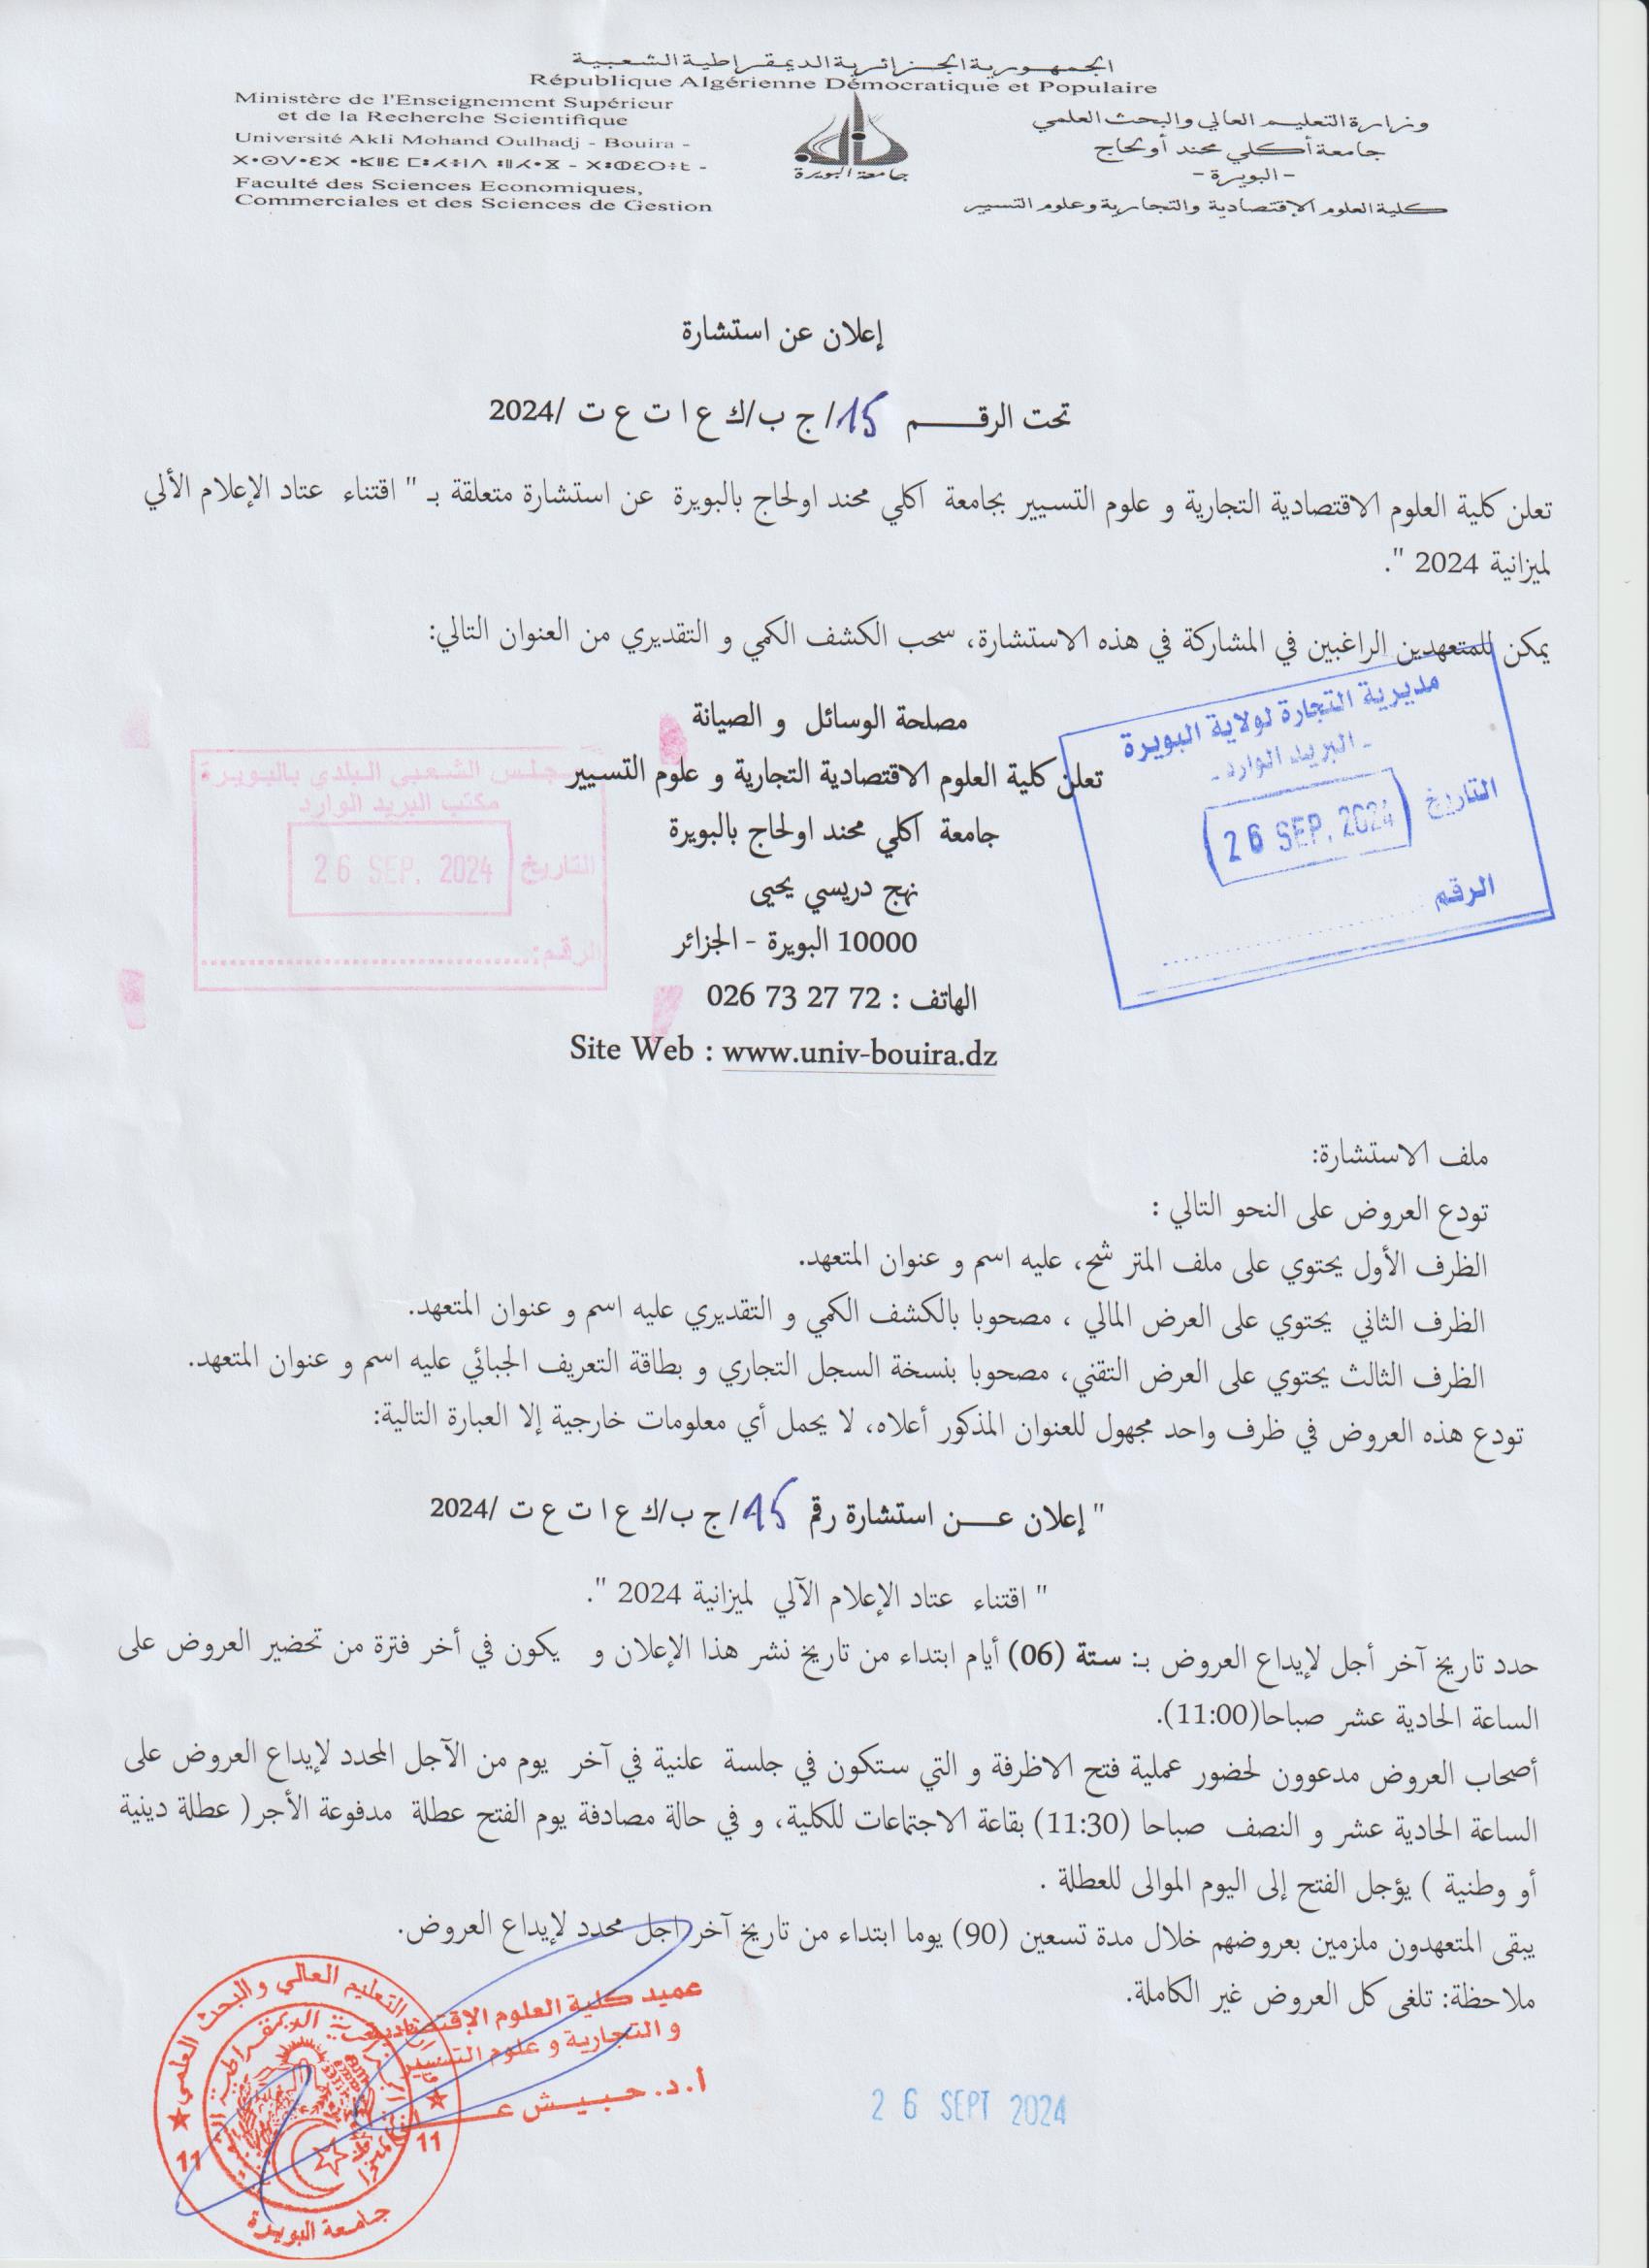 الجمهورية الجزائرية الديمقراطية الشعبية
République Algérienne Démocratique et Populaire
Ministère de l'Enseignement Supérieur
et de la Recherche Scientifique
Université Akli Mohand Oulhadj - Bouira -
ⵜⴰⵙⴷⴰⵡⵉⵜ ⴰⴽⵍⵉ ⵎⵓⵃⵏⴷ ⵓⵍⵃⴰⴵ - ⵜⵓⴱⵉⵔⵜ -
Faculté des Sciences Economiques,
Commerciales et des Sciences de Gestion
جامعة البويرة
وزارة التعليم العالي والبحث العلمي
جامعة أكلي محند أولحاج
- البويرة -
كلية العلوم الإقتصادية والتجارية وعلوم التسيير
إعلان عن استشارة
تحت الرقـــــم 15/ ج ب/ك ع ا ت ع ت /2024
تعلن كلية العلوم الاقتصادية التجارية و علوم التسيير بجامعة اكلي محند اولحاج بالبويرة عن استشارة متعلقة بـ " اقتناء عتاد الإعلام الألي
لميزانية 2024 ".
يمكن للمتعهدين الراغبين في المشاركة في هذه الاستشارة، سحب الكشف الكمي و التقديري من العنوان التالي:
مديرية التجارة لولاية البويرة
- البريد الوارد -
التاريخ 26 SEP. 2024
الرقم
مصلحة الوسائل و الصيانة
تعلن كلية العلوم الاقتصادية التجارية و علوم التسيير
جامعة اكلي محند اولحاج بالبويرة
نهج دريسي يحيى
10000 البويرة - الجزائر
الهاتف : 72 27 73 026
Site Web : www.univ-bouira.dz
المجلس الشعبي البلدي بالبويرة
مكتب البريد الوارد
التاريخ 26 SEP. 2024
الرقم:
ملف الاستشارة:
تودع العروض على النحو التالي :
الظرف الأول يحتوي على ملف المتر شح، عليه اسم و عنوان المتعهد.
الظرف الثاني يحتوي على العرض المالي ، مصحوبا بالكشف الكمي و التقديري عليه اسم و عنوان المتعهد.
الظرف الثالث يحتوي على العرض التقني، مصحوبا بنسخة السجل التجاري و بطاقة التعريف الجبائي عليه اسم و عنوان المتعهد.
تودع هذه العروض في ظرف واحد مجهول للعنوان المذكور أعلاه، لا يحمل أي معلومات خارجية إلا العبارة التالية:
" إعلان عـــن استشارة رقم 15/ ج ب/ك ع ا ت ع ت /2024
" اقتناء عتاد الإعلام الآلي لميزانية 2024 ".
حدد تاريخ آخر أجل لإيداع العروض بـ: ستة (06) أيام ابتداء من تاريخ نشر هذا الإعلان و يكون في أخر فترة من تحضير العروض على
الساعة الحادية عشر صباحا(11:00).
أصحاب العروض مدعوون لحضور عملية فتح الاظرفة و التي ستكون في جلسة علنية في آخر يوم من الآجل المحدد لإيداع العروض على
الساعة الحادية عشر و النصف صباحا (11:30) بقاعة الاجتماعات للكلية، و في حالة مصادفة يوم الفتح عطلة مدفوعة الأجر( عطلة دينية
أو وطنية ) يؤجل الفتح إلى اليوم الموالى للعطلة .
يبقى المتعهدون ملزمين بعروضهم خلال مدة تسعين (90) يوما ابتداء من تاريخ آخر اجل محدد لإيداع العروض.
ملاحظة: تلغى كل العروض غير الكاملة.
عميد كلية العلوم الإقتصادية
و التجارية و علوم التسيير
أ.د. حبيش
التعليم العالي والبحث العلمي
11 11
جامعة البويرة
26 SEPT 2024